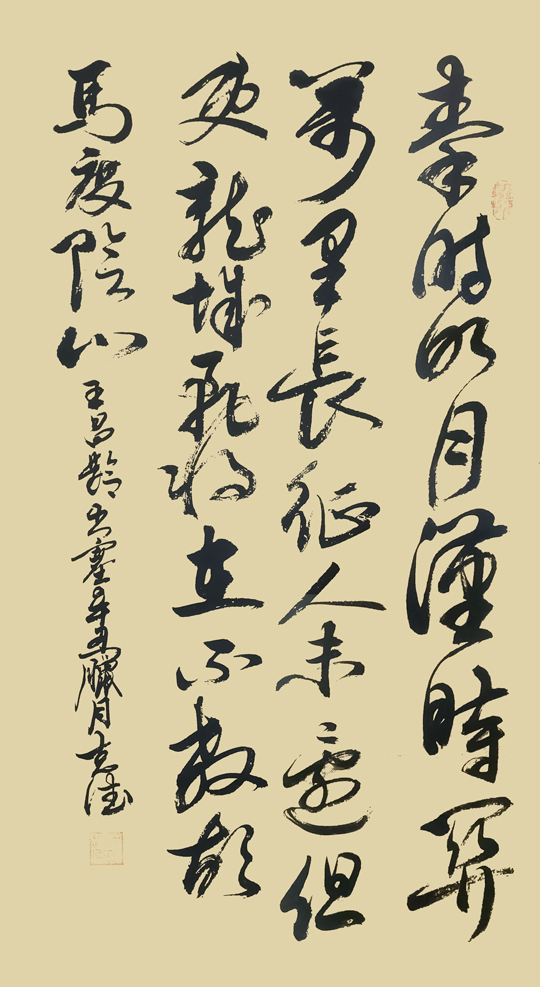 秦時明月漢時關
萬里長征人未還但
使龍城飛將在不教胡
馬度陰山 王昌齡出塞辛丑臘月